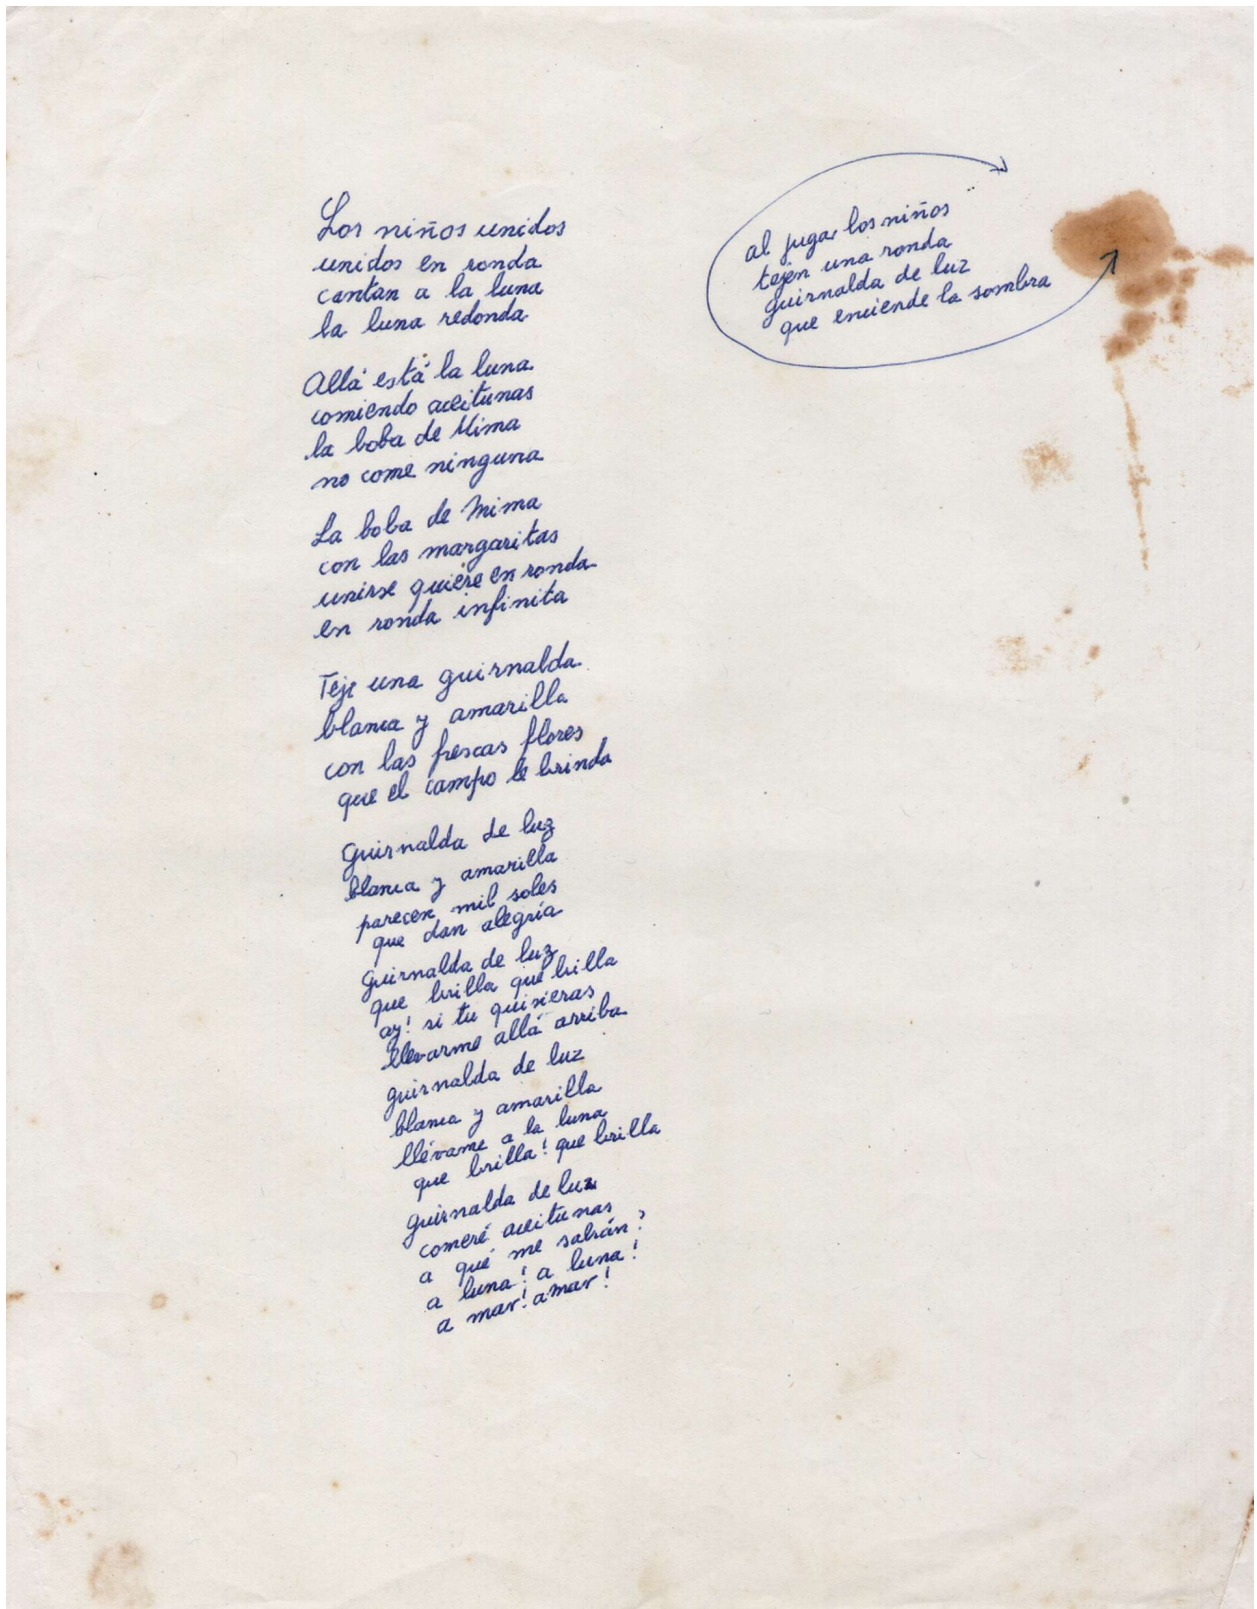 Los niños unidos
unidos en ronda
cantan a la luna
la luna redonda
Allá está la luna
comiendo aceitunas
la boba de Mima
no come ninguna
La boba de Mima
con las margaritas
unirse quiere en ronda
en ronda infinita
Teje una guirnalda
blanca y amarilla
con las frescas flores
que el campo le brinda
guirnalda de luz
blanca y amarilla
parecen mil soles
que dan alegría
guirnalda de luz
que brilla que brilla
ay! si tu quisieras
llevarme allá arriba
guirnalda de luz
blanca y amarilla
llévame a la luna
que brilla! que brilla
guirnalda de luz
comeré aceitunas
a qué me sabrán?
a luna! a luna!
a mar! a mar!
al jugar los niños
tejen una ronda
guirnalda de luz
que enciende la sombra